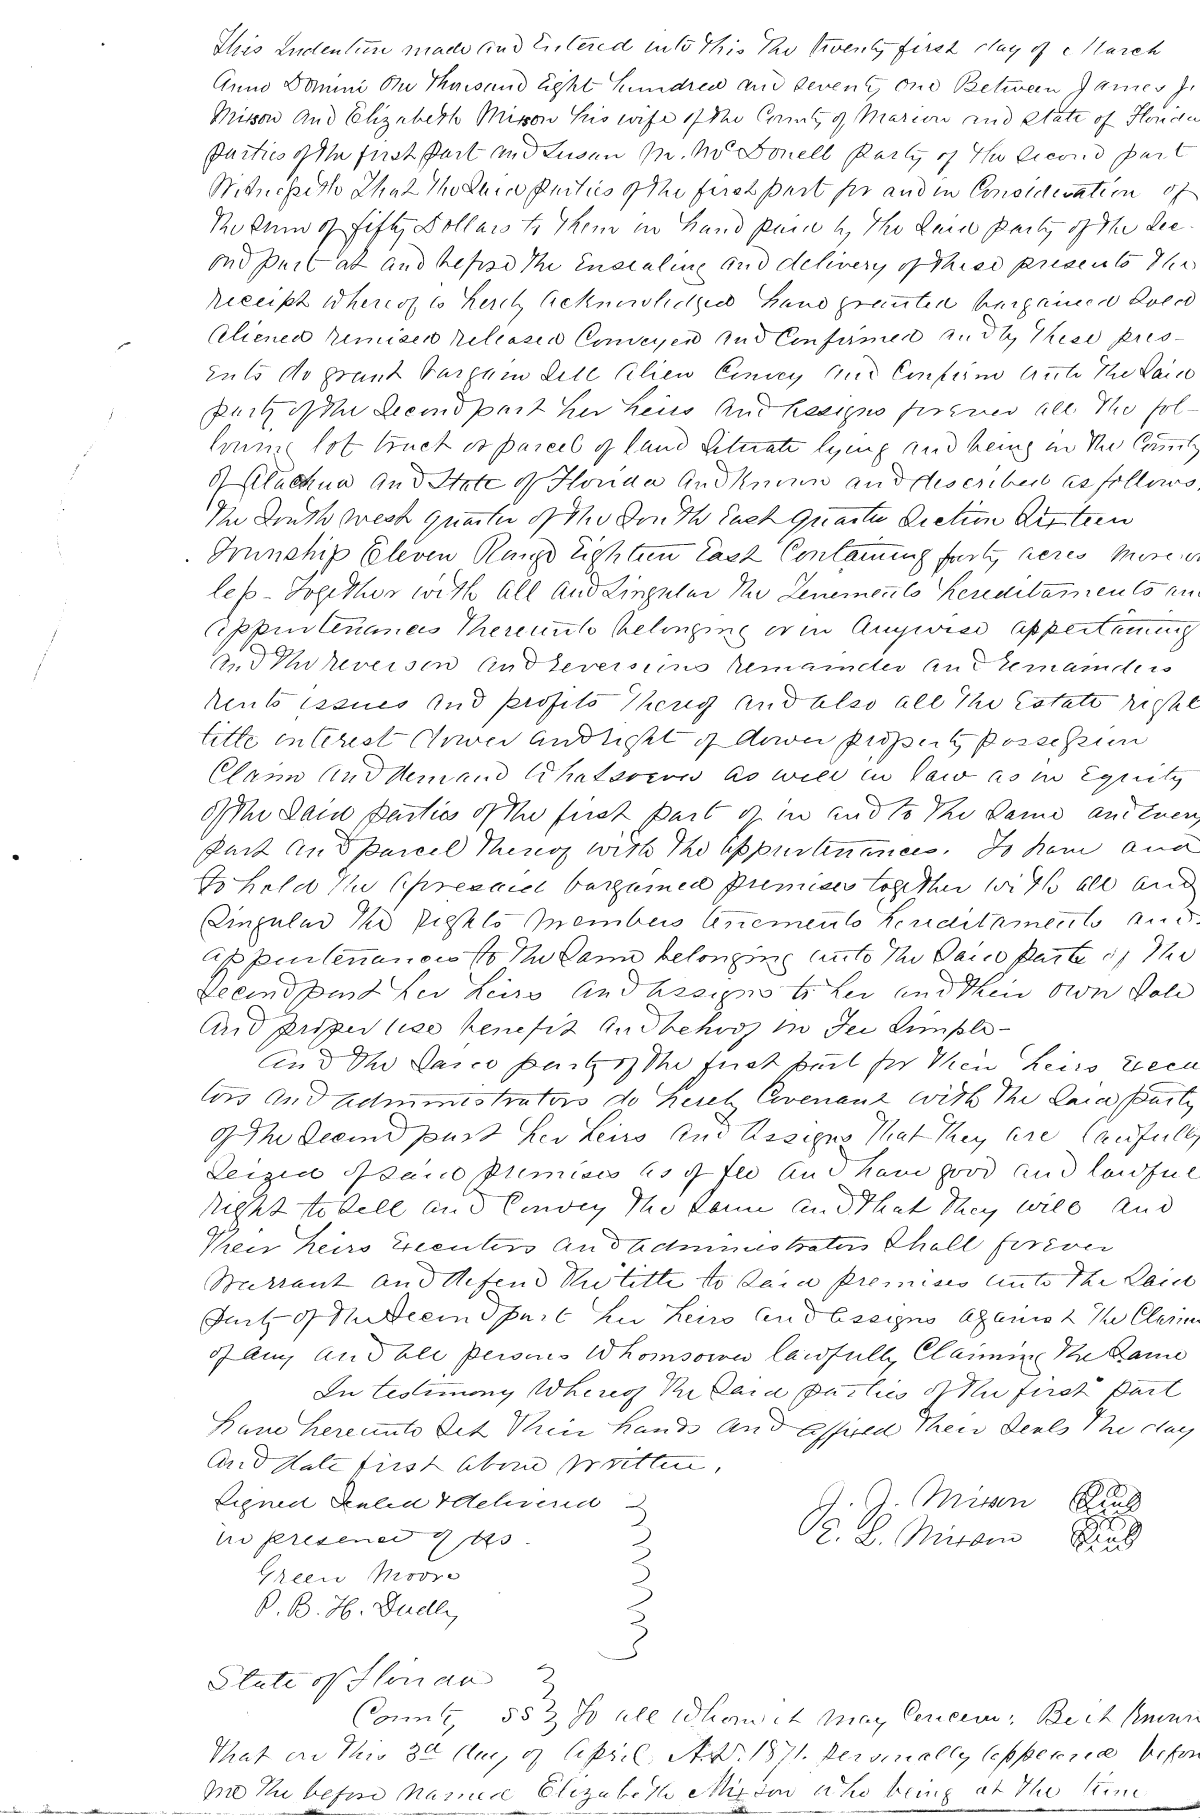 This Indenture made and Entered into this the twenty first day of March
Anno Domini One thousand Eight hundred and seventy one Between James J.
Mixson and Elizabeth Mixson his wife of the County of Marion and State of Florida
parties of the first part and Susan M. McDonell party of the Second part
Witnesseth That the Said parties of the first part for and in Consideration of
the Sum of fifty Dollars to them in hand paid by the Said party of the Sec-
ond part at and before the Ensealing and delivery of these presents the
receipt whereof is hereby acknowledged have granted bargained Sold
aliened remised released Conveyed and Confirmed and by these pres-
ents do grant bargain Sell alien Convey and Confirm unto the Said
party of the Second part her heirs and assigns forever all the fol-
lowing lot tract or parcel of land Situate lying and being in the County
of Alachua and State of Florida and known and described as follows.
The South west quarter of the South East quarter Section Sixteen
Township Eleven Range Eighteen East Containing forty acres more or
less - Together with all and Singular the Tenements hereditaments an
appurtenances thereunto belonging or in anywise appertaining
and the reverson and reversions remainder and remainders
rents issues and profits thereof and also all the Estate right
title interest dower and right of dower property possession
Claim and demand whatsoever as well in law as in Equity
of the Said parties of the first part of in and to the Same and Every
part and parcel thereof with the appurtenances. To have and
to hold the aforesaid bargained premises together with all and
Singular the rights members tenements hereditaments and
appurtenances to the Same belonging unto the Said party of the
Second part her heirs and assigns to her and their own Sole
and proper use benefit and behoof in Fee Simple -
And the Said party of the first part for their heirs Execu
tors and administrators do hereby Covenant with the Said party
of the Second part her heirs and assigns that they are lawfully
Seized of said premises as of fee and have good and lawful
right to Sell and Convey the Same and that they will and
their heirs Executors and administrators Shall forever
Warrant and defend the title to Said premises unto the Said
Party of the Second part her heirs and assigns against the Claims
of any and all persons whomsoever lawfully Claiming the Same
In testimony whereof the Said parties of the first part
have hereunto Set their hands and affixed their Seals the day
and date first above written.
Signed Sealed & delivered
in presence of us.
J. J. Mixson Seal
E. L. Mixson Seal
Green Moore
P. B. H. Dudly
State of Florida
County SS To all whom it may Concern: Be it Known
that on this 3d day of April A.D. 1871. personally appeared before
me the before named Elizabeth Mixson who being at the time